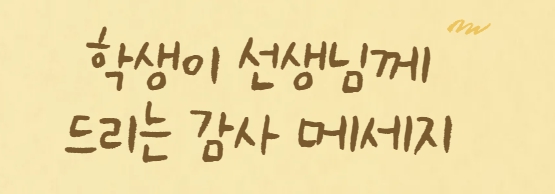 학생이 선생님께
드리는 감사 메세지